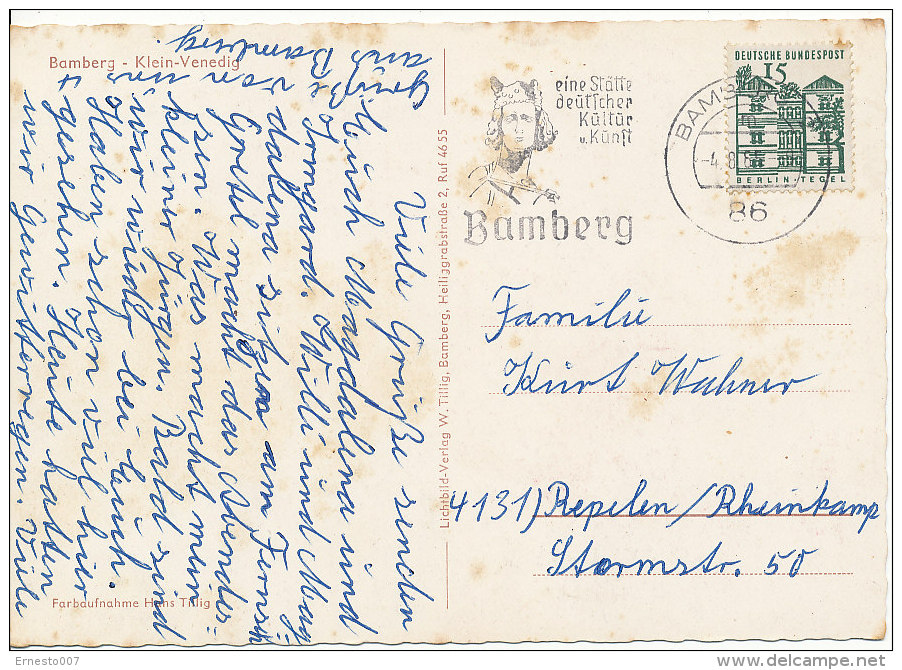 Bamberg - Klein-Venedig
Viele Grüße senden
Euch Magdalena und
Irmgard. Willi und Mag=
dalena sitzen am Fernseh
Gretel macht das Abendes=
sen. Was macht nun
kleiner Jürgen. Bald sind
wir wieder bei Euch.
Haben schon viel hier
gesehen. Heute hatten
wir Gewitterregen. Viele
Grüße von uns
aus Bamberg.
Farbaufnahme Hans Tillig
Lichtbild-Verlag W. Tillig, Bamberg, Heiliggrabstraße 2, Ruf 4655
eine Stätte
deutscher
Kultur
u. Kunst
Bamberg
BAMB
-4.8.
86
DEUTSCHE BUNDESPOST
15
BERLIN-TEGEL
Familie
Kurt Wahner
4131) Repelen/Rheinkamp
Stormstr. 50
Ernesto007
delcampe.net